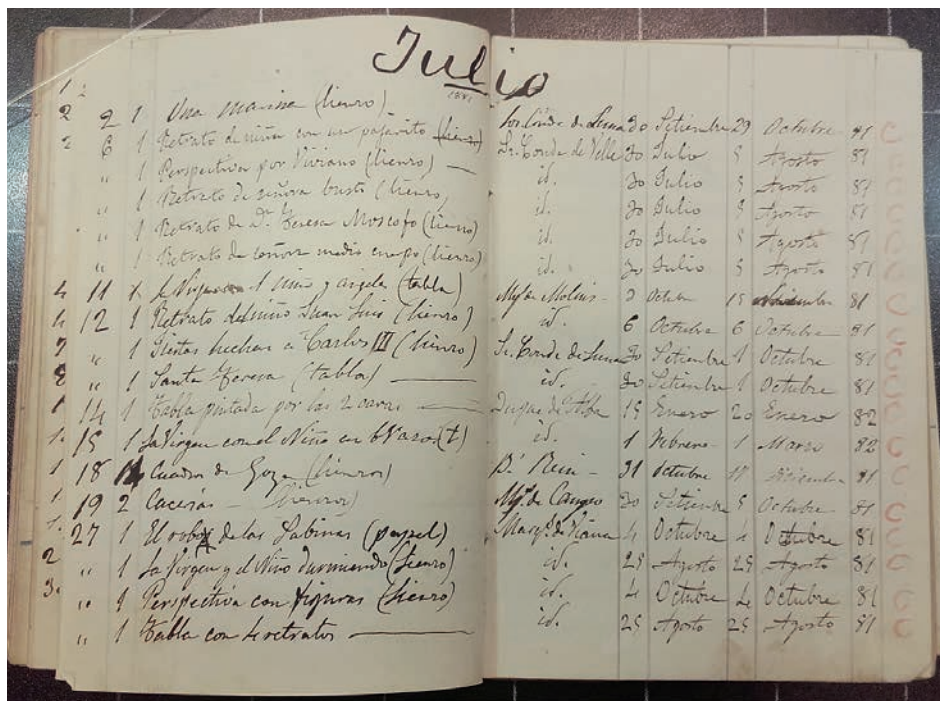 Julio
1881
2 2 1 Una marina (lienzo) Sor. Conde de Luna 30 Setiembre 29 Octubre 81 C
2 6 1 Retrato de niña con un pajarito (lienzo) Sr. Conde de Velle 30 Julio 5 Agosto 81 C
" 1 Perspectiva por Viviano (lienzo) — id. 30 Julio 5 Agosto 81 C
" 1 Retrato de señora busto (lienzo) id. 30 Julio 5 Agosto 81 C
" 1 Retrato de Dª Teresa (lienzo) id. 30 Julio 5 Agosto 81 C
" 1 Retrato de señora medio cuerpo (lienzo) id. 30 Julio 5 Agosto 81 C
4 11 1 La Virgen el niño y angeles (tabla) Mqs. de Molins - 2 Octubre 15 81 C
12 1 Retrato del niño Juan Luis (lienzo) id. 6 Octubre 6 Octubre 81 C
7 " 1 Fiestas hechas a Carlos III (lienzo) Sr. Conde de Luna 30 Setiembre 1 Octubre 81 C
8 " 1 Santa Teresa (tabla) — id. 30 Setiembre 1 Octubre 81 C
1 14 1 Tabla pintada por las 2 caras — Duque de Alba 15 Enero 20 Enero 82 C
1. 15 1 La Virgen con el Niño en (t) id. 1 Febrero - 1 Marzo 82 C
1 18 Cuadros de Goya (lienzos) 31 Octubre 17 81 C
1. 19 2 Cacerías — (lienzos) Mqs. de 30 Setiembre 5 Octubre 81 C
1. 27 1 El robo de las Sabinas (papel) Marqs. de Viana 4 Octubre 4 Octubre 81 C
2 " 1 La Virgen y el Niño durmiendo (lienzo) id. 25 Agosto 25 Agosto 81 C
3. " 1 Perspectiva con figuras (lienzo) id. 4 Octubre 4 Octubre 81 C
" 1 Tabla con 4 retratos — id. 25 Agosto 25 Agosto 81 C